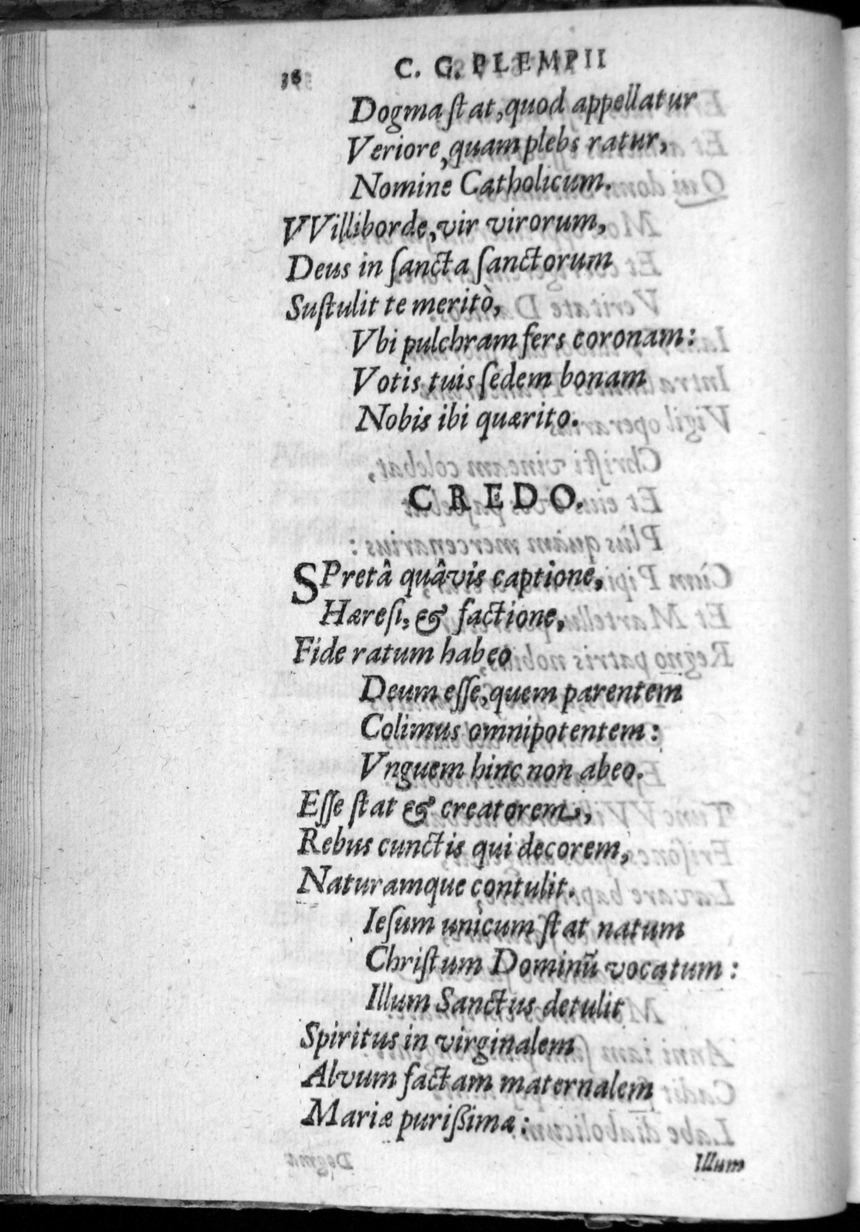 38 C. G. PLEMPII
Dogma ſtat, quod appellatur
Veriore, quam plebs ratur,
Nomine Catholicum.
VVilliborde, vir virorum,
Deus in ſancta ſanctorum
Suſtulit te meritò,
Vbi pulchram fers coronam:
Votis tuis ſedem bonam
Nobis ibi quærito.
CREDO.
SPretâ quâvis captione,
Hæreſi, & factione,
Fide ratum habeo
Deum eſſe, quem parentem
Colimus omnipotentem:
Vnguem hinc non abeo.
Eſſe ſtat & creatorem,
Rebus cunctis qui decorem,
Naturamque contulit.
Ieſum unicum ſtat natum
Chriſtum Dominũ vocatum:
Illum Sanctus detulit
Spiritus in virginalem
Alvum factam maternalem
Mariæ purißimæ:
Illum